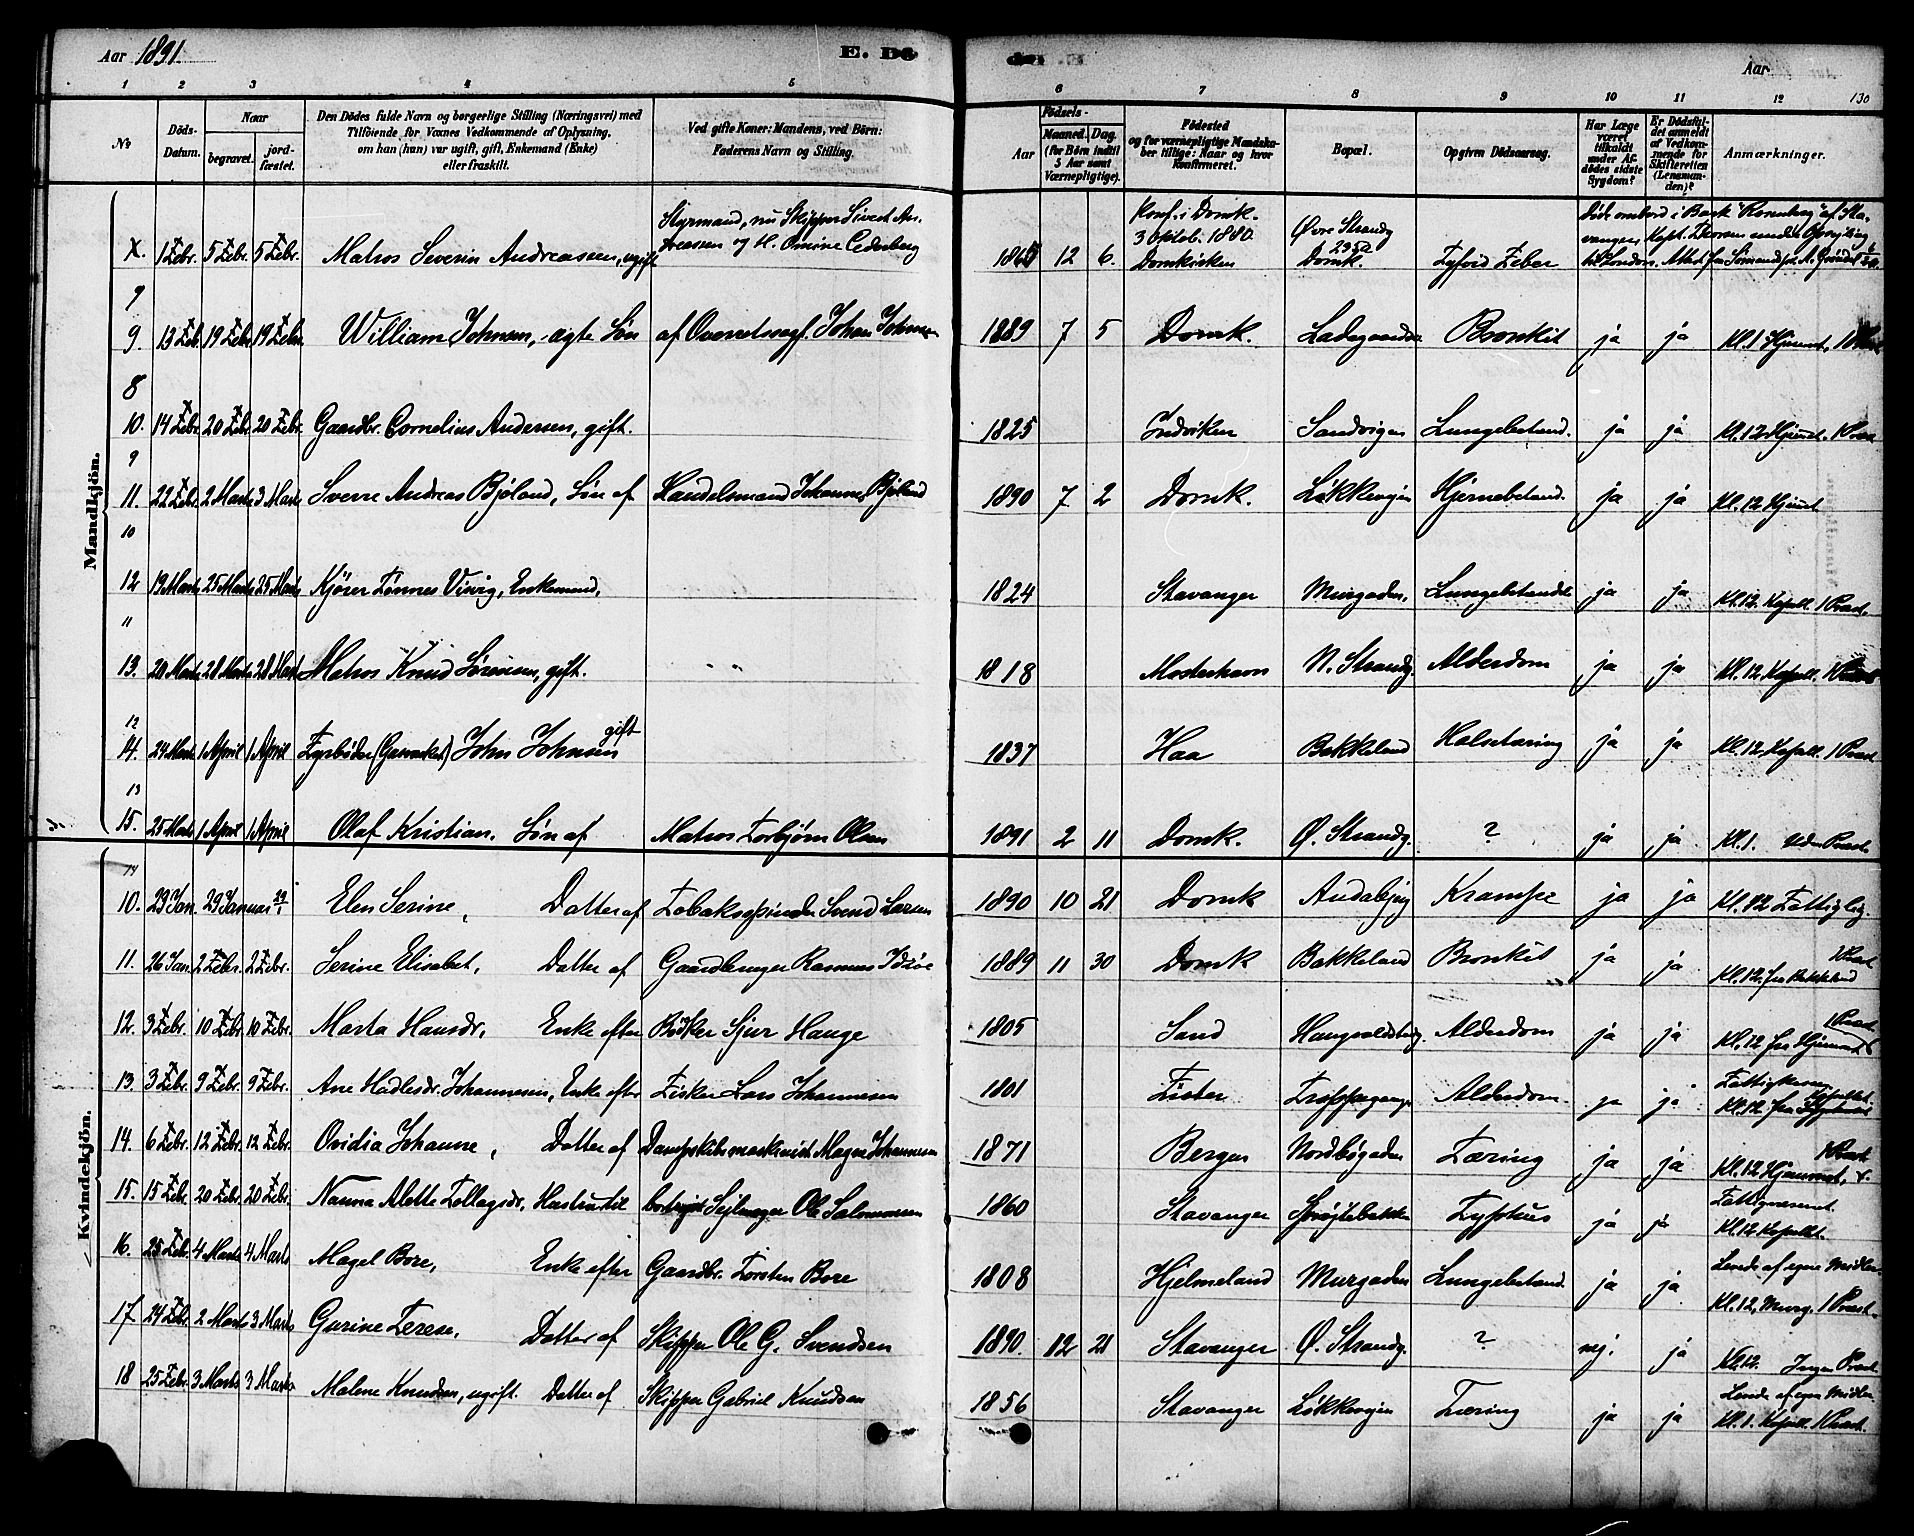 Aar 1891. E. Dö
de. Aar 130
1 2 3 4 5 6 7 8 9 10 11 12
No Döds-Datum. Naar begravet. jordfæstet. Den Dödes fulde Navn og borgerlige Stilling (Næringsvei) med Tilföiende for Voxnes Vedkommende af Oplysning, om han (hun) var ugift, gift, Enkemand (Enke) eller fraskilt. Ved gifte Koner: Mandens, ved Börn: Faderens Navn og Stilling. Födsels- Aar Maaned. Dag. (for Börn indtil 5 Aar samt Værnepligtige). Födested og for værnepligtige Mandskaber tillige: Naar og hvor Konfirmeret. Bopæl. Opgiven Dödsaarsag. Har Læge været tilkaldt under Afdödes sidste Sygdom? Er Dödsfaldet anmeldt af Vedkommende for Skifteretten (Lensmanden)? Anmærkninger.
Mandkjön.
X. 1 Febr. 5 Febr. 5 Febr. Matros Severin Andreassen, ugift Styrmand, nu Skipper Sivert Andreassen og H. Omine Cederberg 1865 12 6. Konf. i Domk. 3 Oktob. 1880. Domkirken Øvre Strandg Domk. Tyfoid Feber Död ombord i Bark "Rosenhag" af Stavanger Kapt.
9
9. 13 Feb. 19 Febr. 19 Febr. William Johnsen, ægte Søn af Overretssagf. Johan Johnsen 1889 7 5 Domk. Ladegaardsv. Bronkit ja ja Kl. 1 Hjemmet, 1 Præst
8
10. 14 Febr. 20 Febr. 20 Febr. Gaardbr. Cornelius Andersen, gift. 1825 Indviken Sandvigen Lungebetænd. ja ja Kl. 12 Hjemmet. 1 Præst
9
11. 22 Febr. 2 Marts 3 Marts Sverre Andreas Bjeland, Søn af Handelsmand Johannes Bjeland 1890 7 2 Domk. Løkkevejen Hjernebetænd. ja ja Kl. 12 Hjemmet
10
12 19 Marts 25 Marts 25 Marts Kjører Tønnes Visvig, Enkemand. 1824 Stavanger Murgaden. Lungebetændl. ja ja Kl. 12. Kapell. 1 Præst.
11
13. 20 Marts 28 Marts 28 Marts Matros Knud Sørensen, gift. 1818 Mosterhavn N. Strandg. Alderdom ja ja Kl. 12. Kapell. 1 Præst
12
14. 24 Marts 1 April 1 April Fyrbøder John Johnsen gift 1837 Haa Bakkeland Halsetæring ja ja Kl. 12. Kapell. 1 Præst.
13
15. 25 Marts 1 April 1 April Olaf Kristian. Søn af Matros Torbjørn Olsen 1891 2 11 Domk. Ø. Strandg. ? ja ja Kl. 1. Uden Præst.
14
Kvindekjön.
10. 23 Jan 29 Januar 29/1 Elen Serine, Datter af Tobakspinder Svend Larsen 1890 10 21 Domk Andabjerg Krampe ja ja Kl. 12 Fattiglig.
11. 26 Jan. 2 Febr. 2 Febr. Serine Elisabet, Datter af Gaardbruger Rasmus Idsøe 1889 11 30 Domk Bakkeland Bronkit ja ja 1 Præst Kl. 12. fra Bakkeland
12. 3 Febr. 10 Febr. 10 Febr. Marta Hansdr, Enke efter Bødker Sjur Hauge 1805 Sand Haugvaldstadg. Alderdom ja ja 1 Præst Kl. 12 fra Hjemmet
13. 3 Febr. 9 Febr. 9 Febr. Ane Hadlesdr. Johannesen, Enke efter Fisker Lars Johannesen 1801 Fister Trappegange Alderdom. ja ja Kl. 12 fra
14. 6 Febr. 12 Febr. 12 Febr. Ovidia Johanne, Datter af Dampskibsmaskinist Magn. Johannesen 1871 Bergen Nordbøgaden Tæring ja ja 1 Præst Kl. 12 Hjemmet,
15. 15 Febr. 20 Febr. 20 Febr. Nanna Alette Tollagsdr. Hustru til bortrejst Sejlmager Ole Salomonsen 1860 Stavanger Sprøjtebakken Tyfhus ja ja Fattigvæsenet. Kl. 12 Kapellet.
16. 25 Feb. 4 Marts 4 Marts Magel Bore, Enke efter Gaardbr. Torsten Bore 1808 Hjelmeland Murgaden Lungebetænd. ja ja Levede af egne Midler Kl. 12, Murg. 1 Præst.
17 24 Feb. 2 Marts 3 Marts Gurine Terese, Datter af Skipper Ole G. Svendsen 1890. 12 21 Stavanger Ø. Strandg. ? nej. ja Kl. 12. Ingen Præst
18 25 Febr. 3 Marts 3 Marts Malene Knudsen, ugift. Datter af Skipper Gabriel Knudsen 1856 Stavanger Løkkevejen Tæring ja ja Levede af egne Midler Kl. 1. Kapell. 1 Præst.